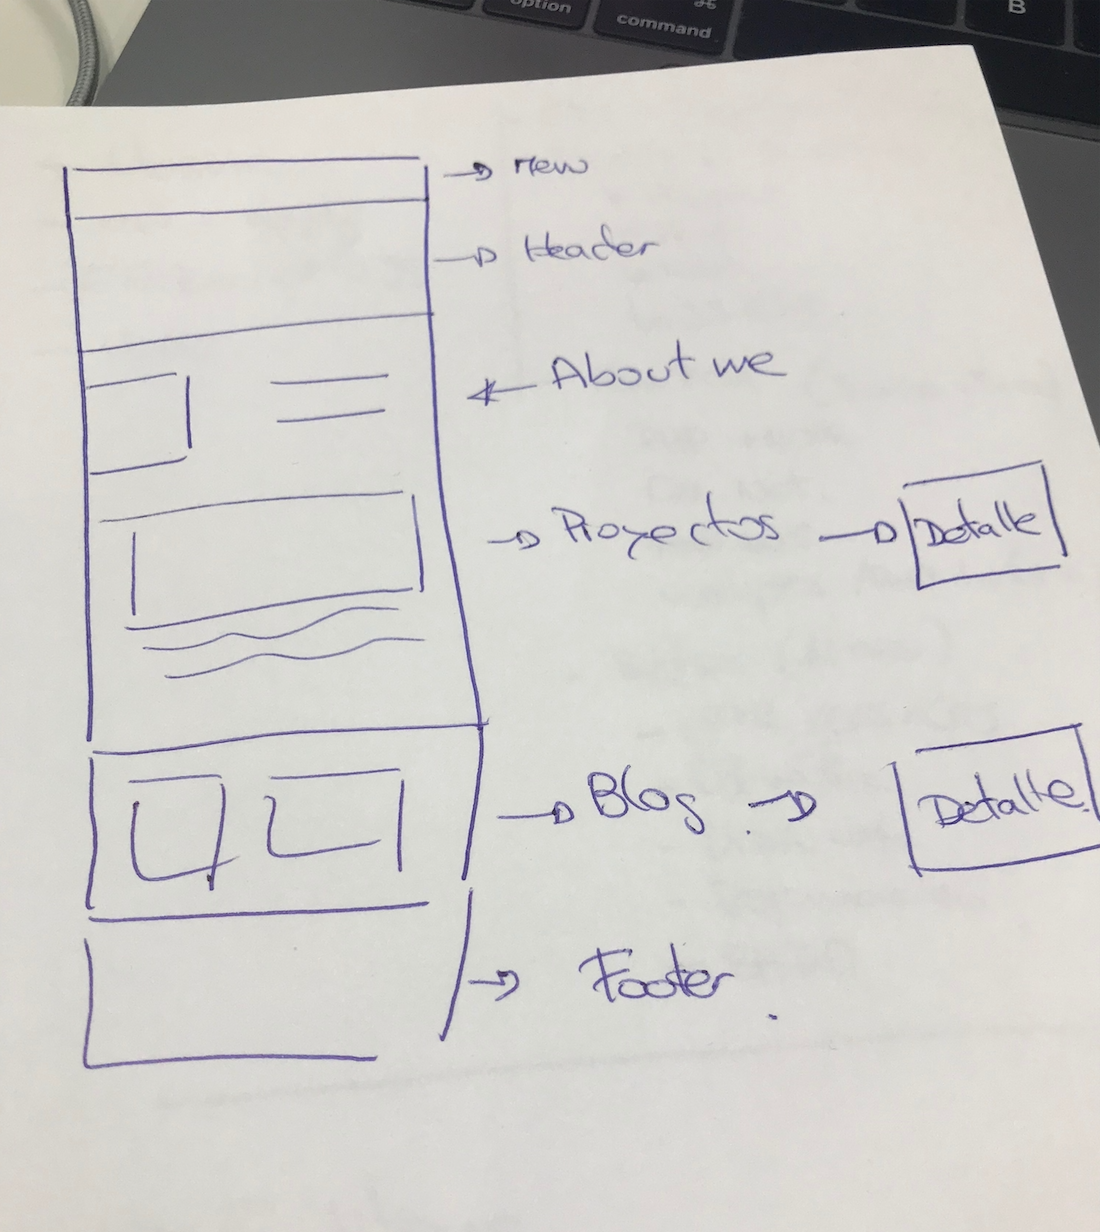 option
⌘
command
B
Menu
Header
About me
Proyectos
Detalle
Blog
Detalle
Footer